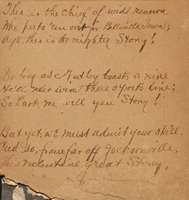 This is the chief of wide renown
Who puts 'em out for Belleville town;
Aye, this is the mighty Stony!
So long as Rudy boasts a nine
Kates, near went there sports line;
So hark me well you Stony!
But yet, we must admit your skill,
And so, from far off Jacksonville,
great Stony,